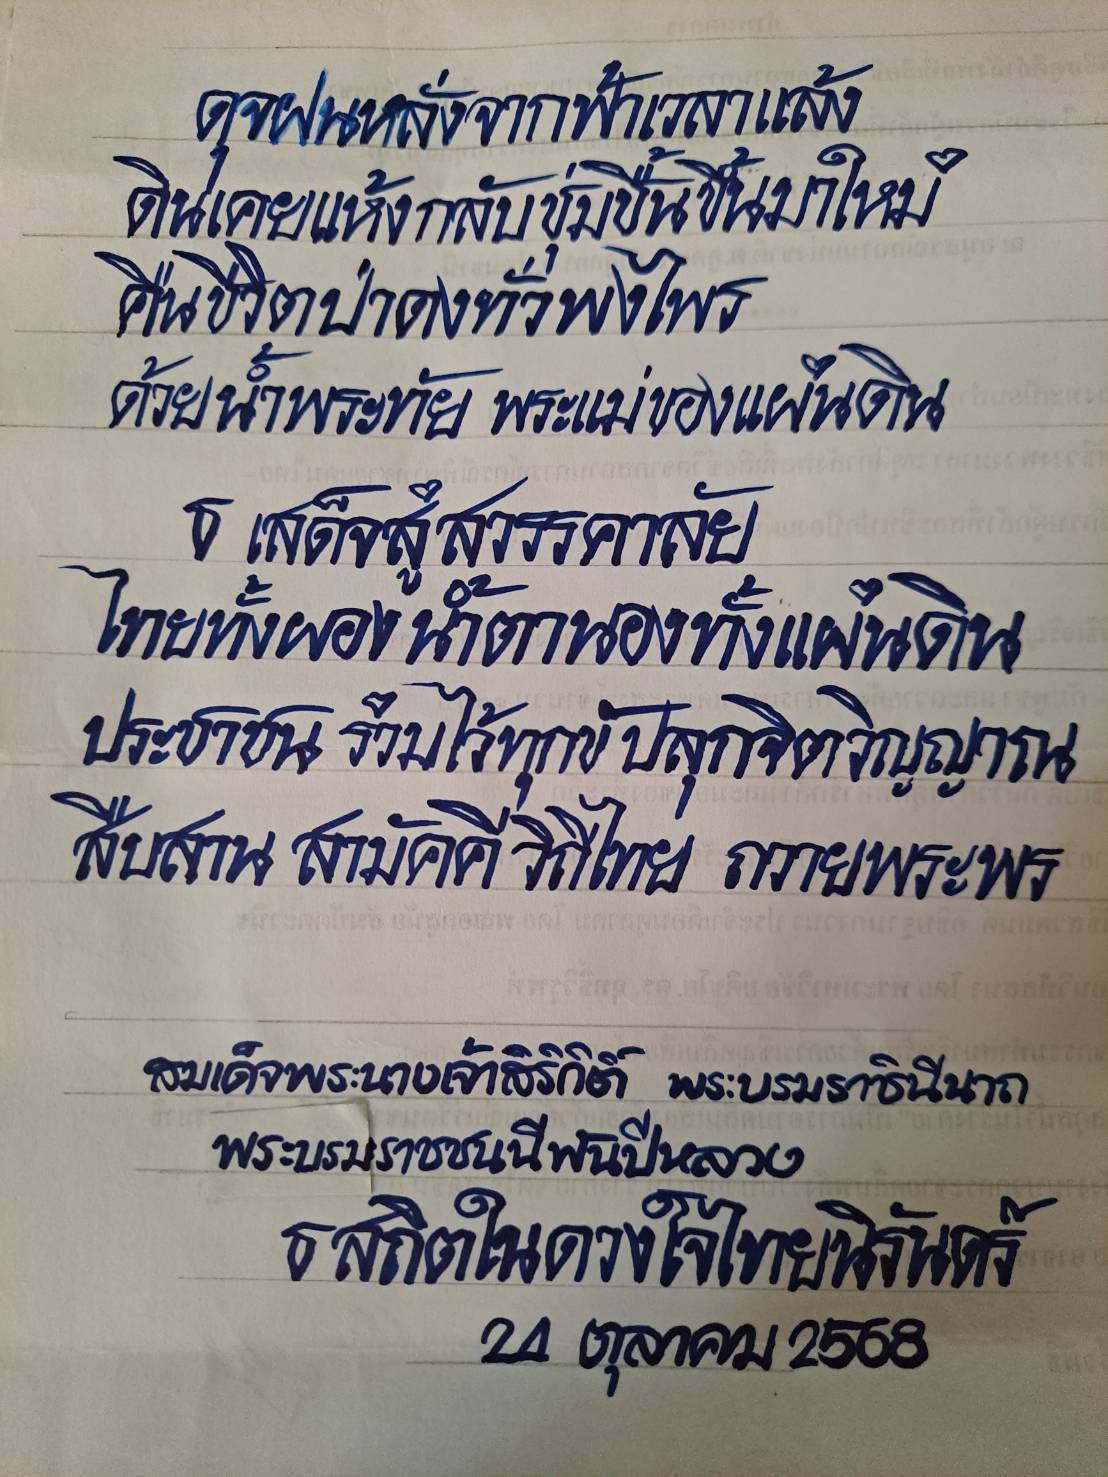 ดุจฝนหลั่งจากฟ้าเวลาแล้ง
ดินเคยแห้งกลับชุ่มชื้นขึ้นมาใหม่
คืนชีวิตป่าดงทั่วพงไพร
ด้วยน้ำพระทัย พระแม่ของแผ่นดิน
ธ เสด็จสู่สวรรคาลัย
ไทยทั้งผองน้ำตานองทั้งแผ่นดิน
ประชาชน ร่วมไว้ทุกข์ ปลุกจิตวิญญาณ
สืบสาน สามัคคี วิถีไทย ถวายพระพร
สมเด็จพระนางเจ้าสิริกิติ์ พระบรมราชินีนาถ
พระบรมราชชนนีพันปีหลวง
ธ สถิตในดวงใจไทยนิรันดร์
24 ตุลาคม 2568